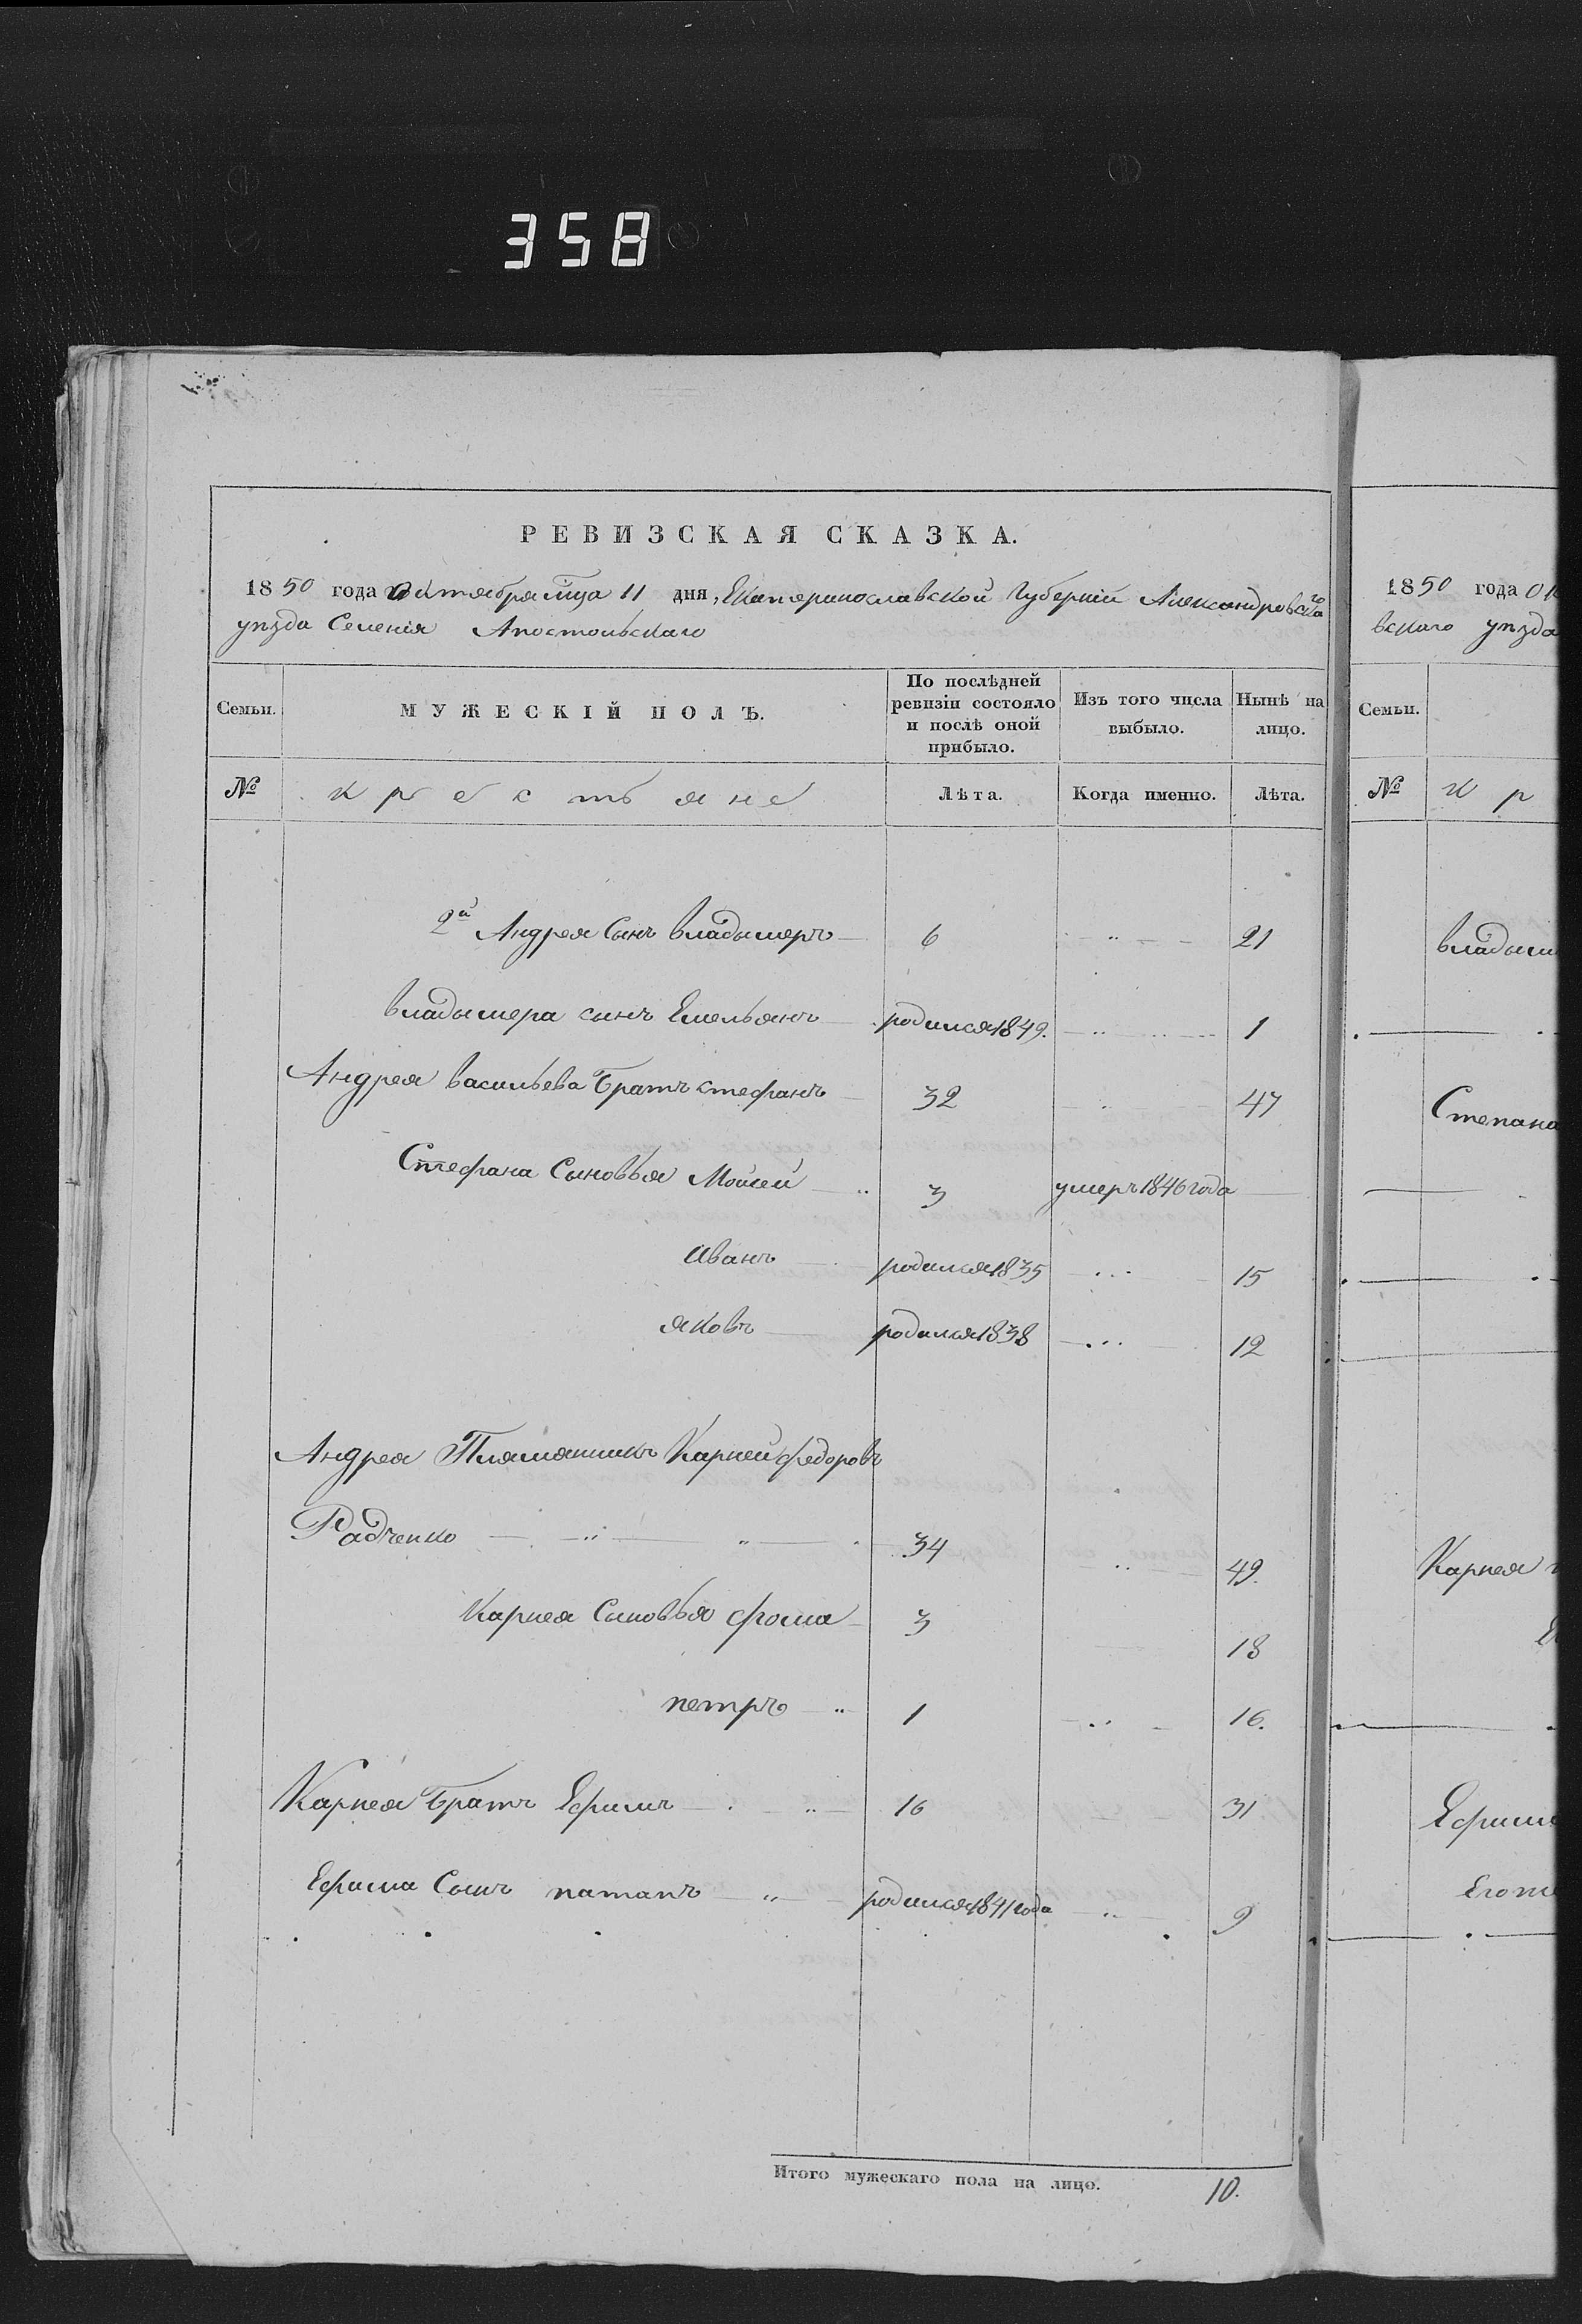 358
РЕВИЗСКАЯ СКАЗКА.
1850 года октября мца 11 дня, Екатеринославской Губерніи Александровскаго
уѣзда Селенія Апостольскаго
Семьи. МУЖЕСКІЙ ПОЛЪ. По послѣдней ревизіи состояло и послѣ оной прибыло. Изъ того числа выбыло. Нынѣ на лицо.
№ крестьяне Лѣта. Когда именно. Лѣта.
2й Андрея Сынъ владымеръ 6 21
владымера сынъ Емельянъ родился 1849. 1
Андрея васильева Братъ стефанъ 32 47
Стефана Сыновья Мойсей 3 умеръ 1846 года
Иванъ родился 1835 15
яковъ родился 1838 12
Андрея Племянникъ Карней федоровъ
Радченко 34 49.
Карнея Сыновья фома 3 18
петръ 1 16.
Карнея Братъ Ефимъ 16 31
Ефима Сынъ патапъ родился 1841 года 9
Итого мужескаго пола на лицо. 10.
1850 года ок
вскаго уѣзда
Семьи.
№ к р
владым
Степана
Карнея
Ефима
Его же